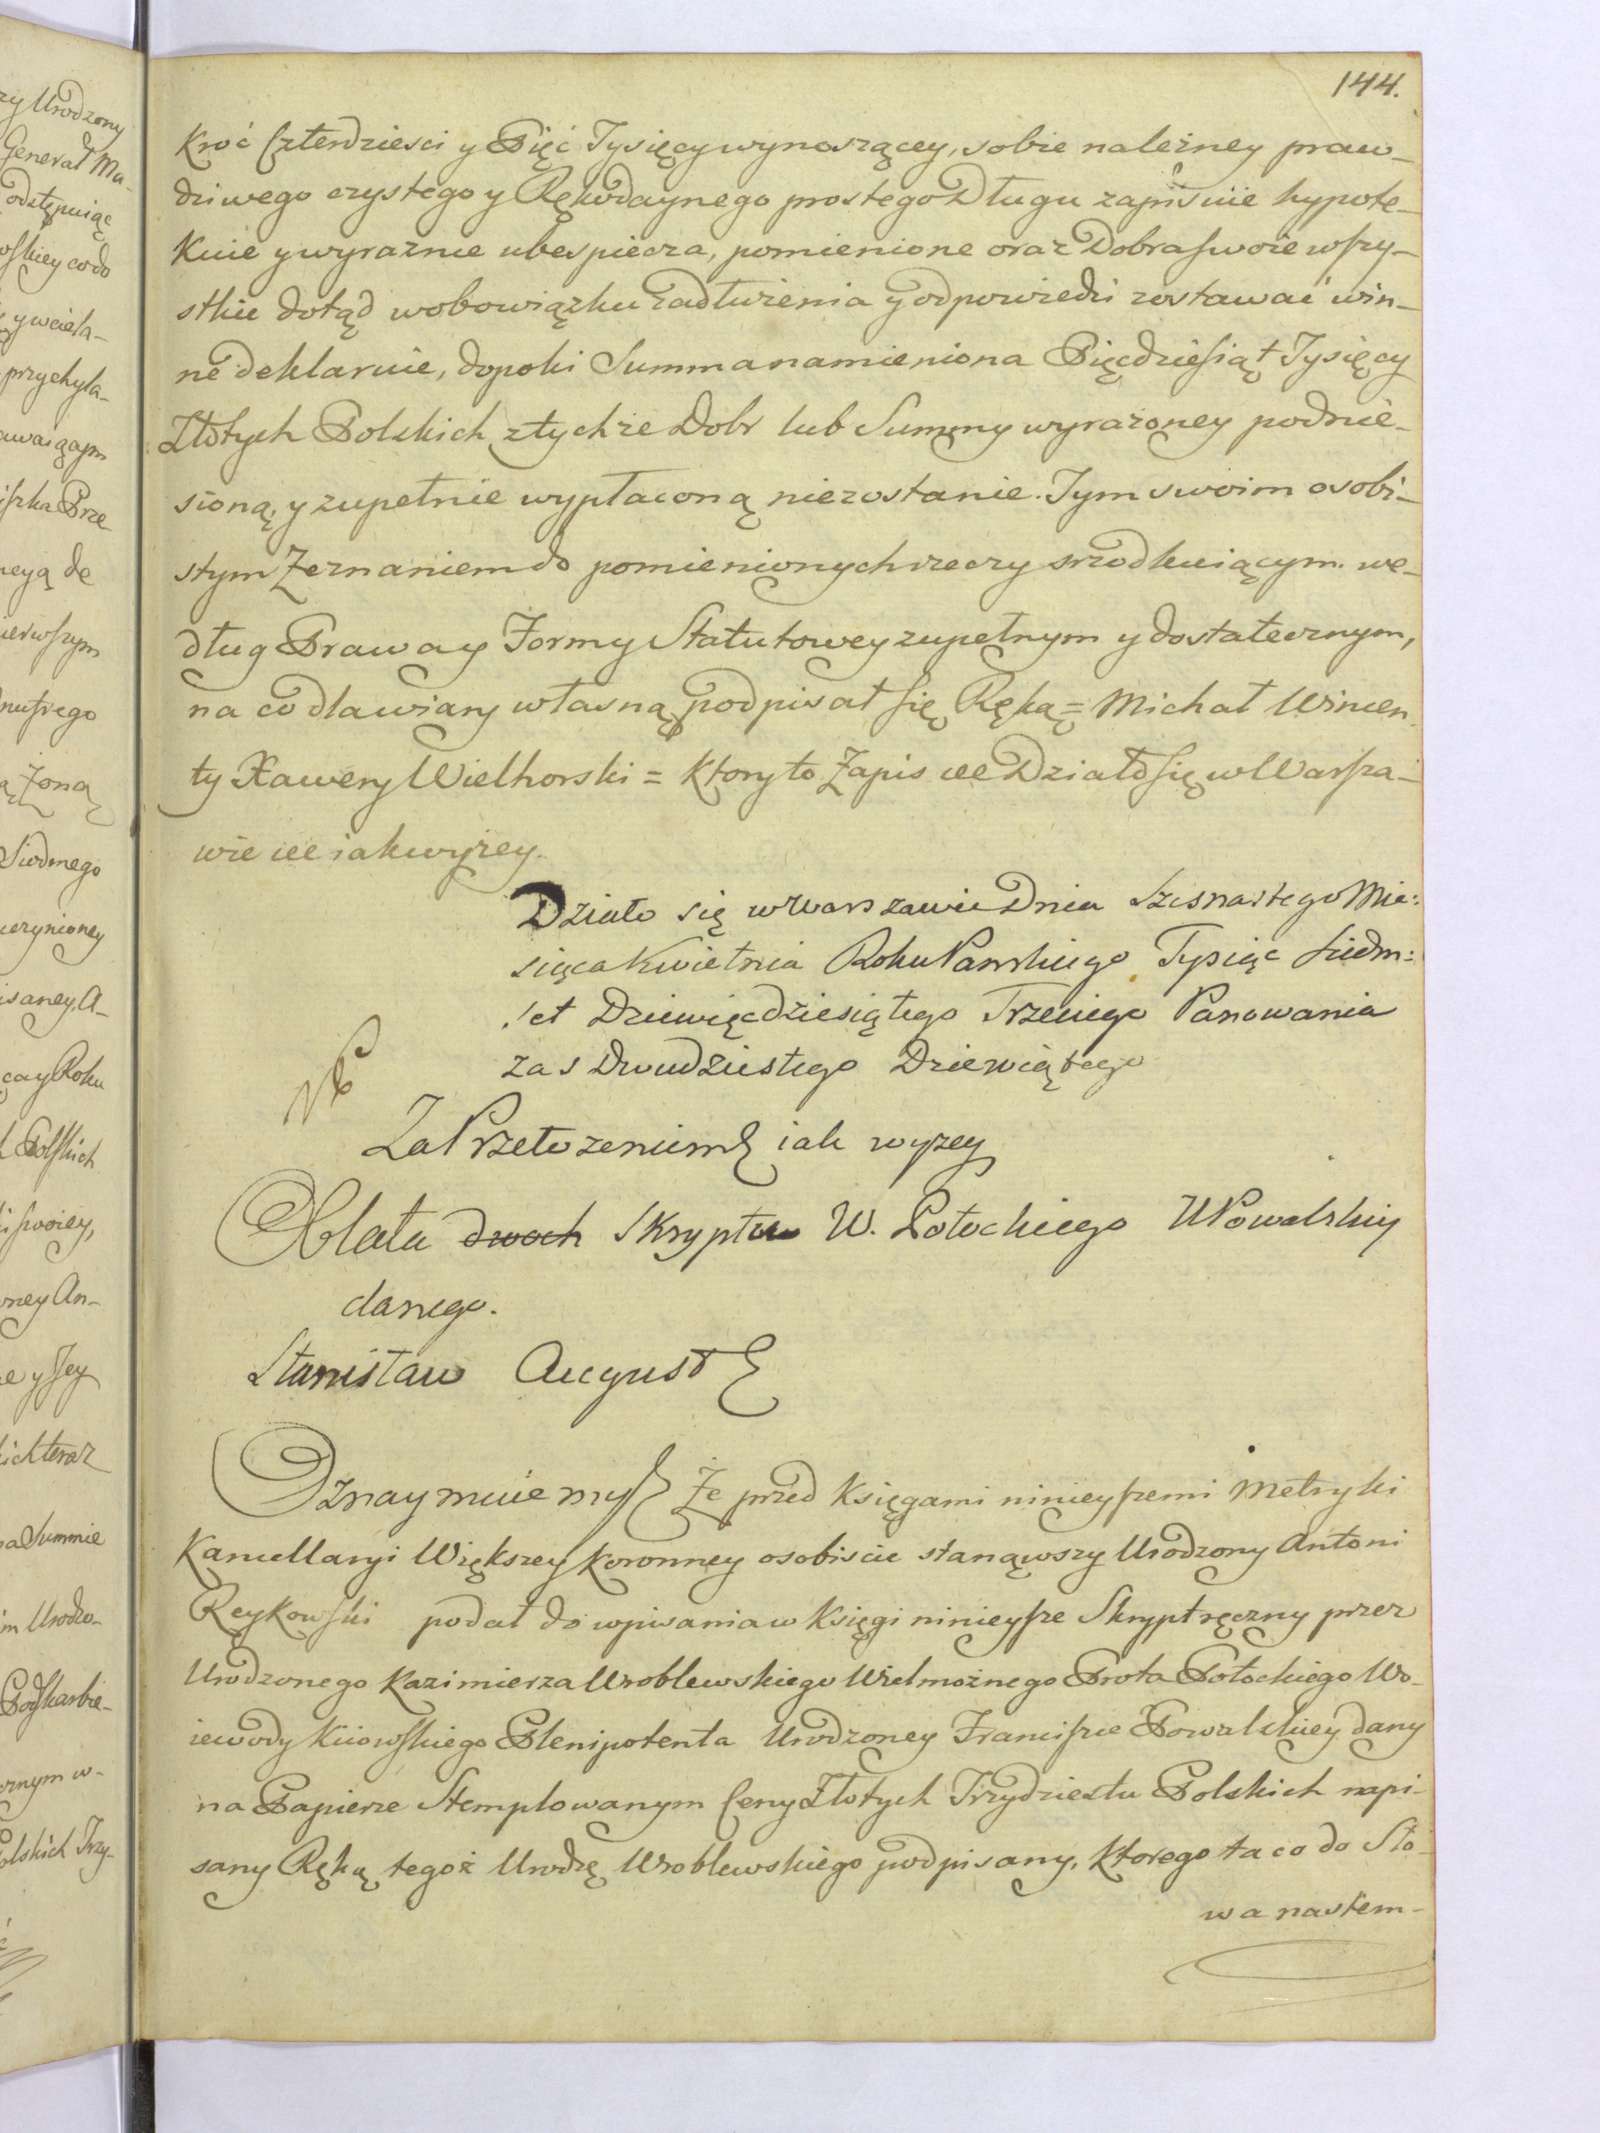 144.
kroć Czterdziesci y Pięć Tysięcy wynoszącey, sobie należney praw-
dziwego czystego y Rękodaynego prostego Długu zapisuie hypote-
kuie y wyraźnie ubespiecza, pomienione oraz Dobra swoie wszy-
stkie dotąd w obowiązku zadłużenia y odpowiedzi zostawać win-
ne deklaruie, dopoki Summa namieniona Pięcdziesiąt Tysięcy
Złotych Polskich z tychże Dobr lub Summy wyrażoney podnie-
sioną, y zupełnie wypłaconą niezostanie. Tym swoim osobi-
stym Zeznaniem do pomienionych rzeczy srzodkuiącym. we-
dług Prawa y Formy Statutowey zupełnym y dostatecznym,
na co dla wiary własną podpisał się Ręką = Michał Wincen
ty Xawery Wielhorski = ktory to Zapis ee Działo się w Warsza-
wie ee iak wyżey.
Działo się w Warszawie Dnia Szesnastego Mie:
sięca Kwietnia Roku Panskiego Tysiąc Siedm:
set Dziewięcdziesiątego Trzeciego Panowania
zas Dwudziestego Dziewiątego
Za Przełozeniem iak wyzey
Oblata dwoch Skryptu W. Potockiego UPowalskiey
danego.
Stanisław August
Oznaymuiemy Że przed Księgami ninieyszemi Metryki
Kancellaryi Większey Koronney osobiscie stanąwszy Urodzony Antoni
Reykowski podał do wpisania w Księgi ninieysze Skrypt ręczny przez
Urodzonego Kazimierza Wroblewskiego Wielmożnego Prota Potockiego Wo-
iewody Kiiowskiego Plenipotenta Urodzoney Franciszce Powalskiey dany
na Papierze Stemplowanym Ceny Złotych Trzydziestu Polskich napi-
sany Ręką tegoż Urodzę Wroblewskiego podpisany, ktorego ta co do Sło-
wa nastem-